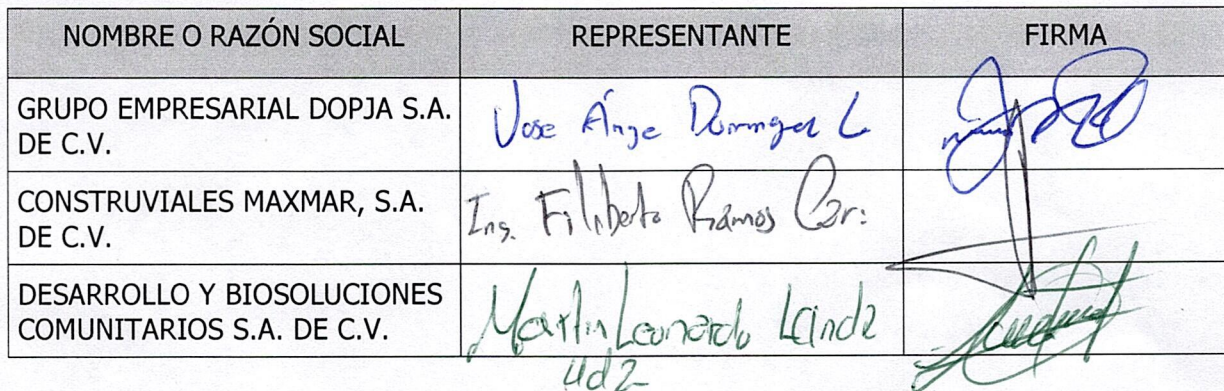 NOMBRE O RAZÓN SOCIAL REPRESENTANTE FIRMA
GRUPO EMPRESARIAL DOPJA S.A.
DE C.V.
Jose Ánge Dominguez L
CONSTRUVIALES MAXMAR, S.A.
DE C.V.
Ing. Filiberto Ramos
DESARROLLO Y BIOSOLUCIONES
COMUNITARIOS S.A. DE C.V.
Martin Leonardo